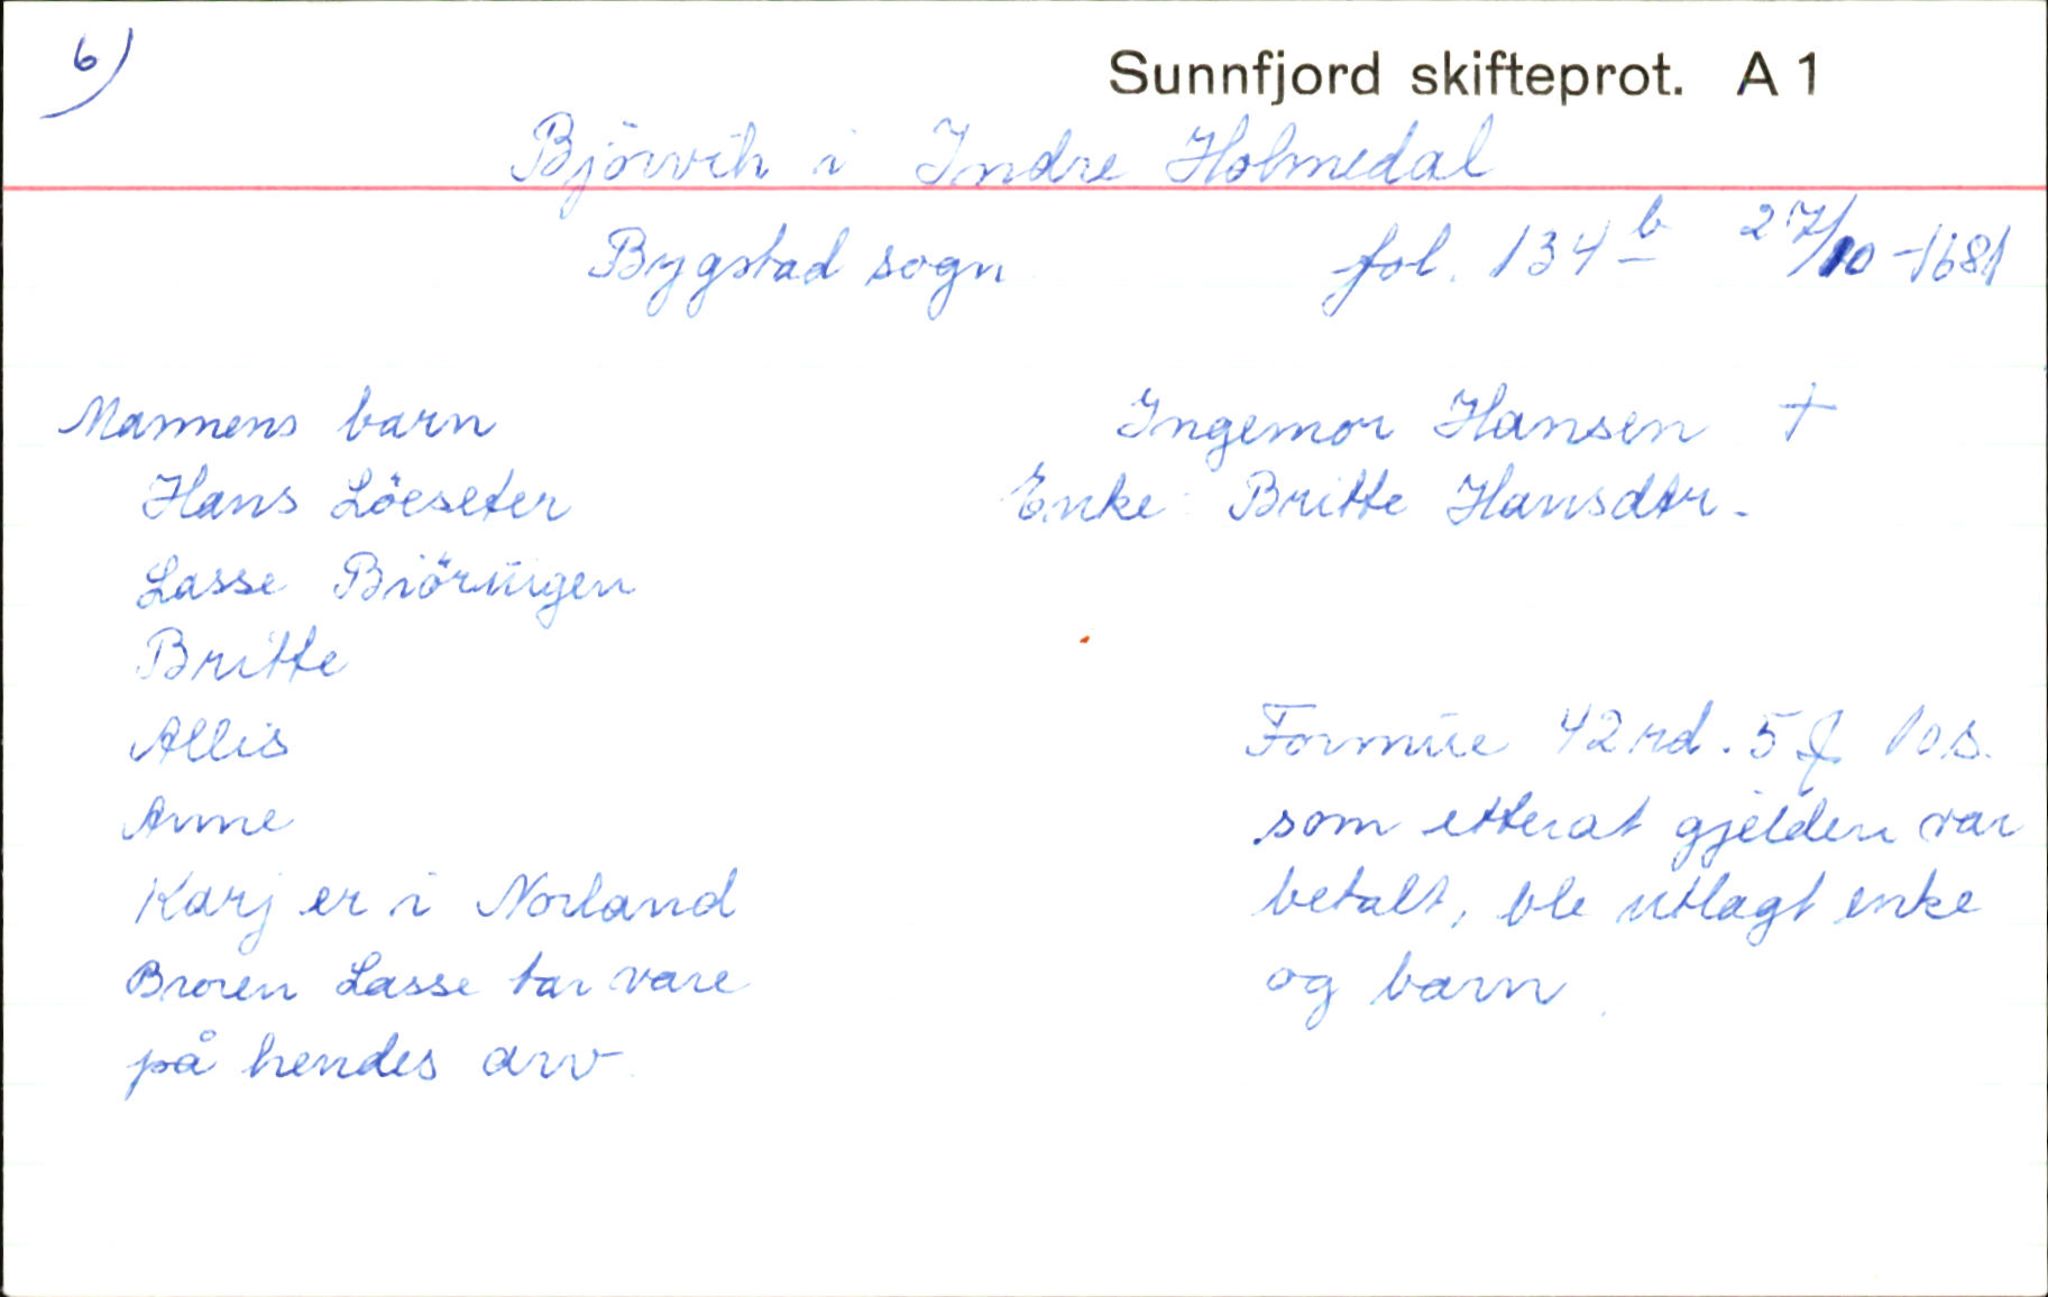 6)
Sunnfjord skifteprot. A 1
Björvik i Indre Holmedal
Bygstad sogn fol. 134 b 27/10-1681
Mannens barn
Hans Löeseter
Lasse Biörvigen
Britte
Allis
Anne
Karj er i Norland
Broren Lasse tar vare
på hendes arv
Ingemor Hansen †
Enke: Britte Hansdtr.
Formue 42 rd. 5 ʄ 10 s.
som etterat gjelden var
betalt, ble utlagt enke
og barn.